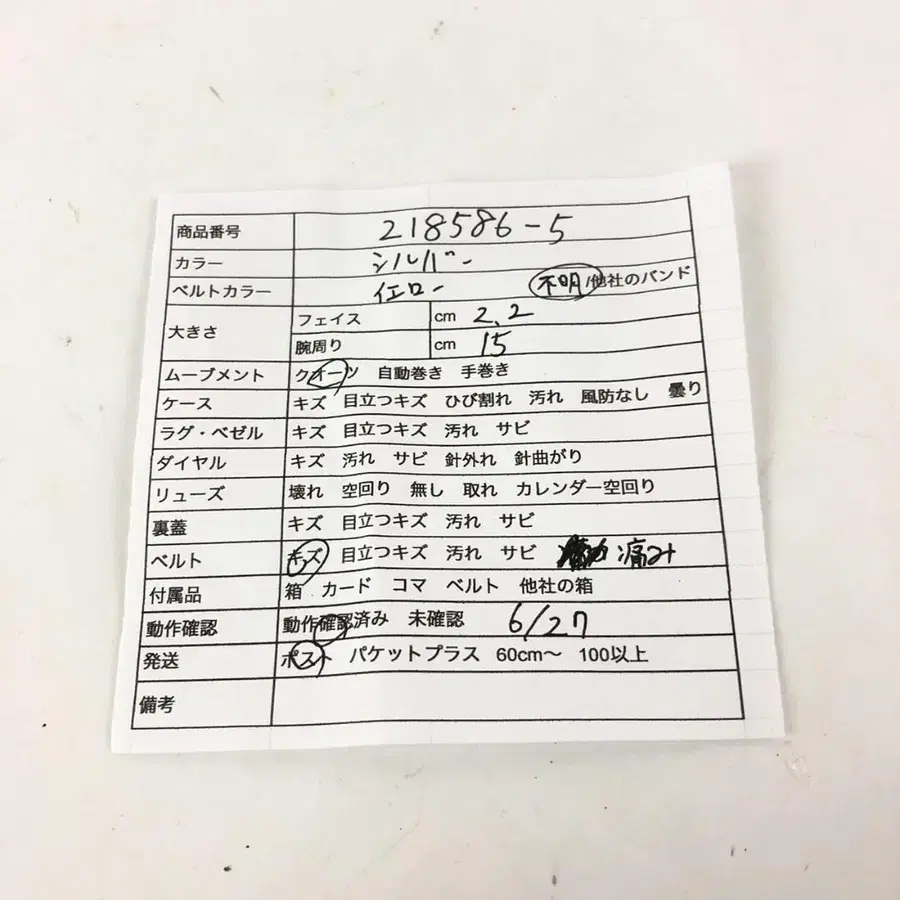 商品番号 218586-5
カラー シルバー
ベルトカラー イエロー 不明/他社のバンド
大きさ フェイス cm 2.2
腕周り cm 15
ムーブメント クオーツ 自動巻き 手巻き
ケース キズ 目立つキズ ひび割れ 汚れ 風防なし 曇り
ラグ・ベゼル キズ 目立つキズ 汚れ サビ
ダイヤル キズ 汚れ サビ 針外れ 針曲がり
リューズ 壊れ 空回り 無し 取れ カレンダー空回り
裏蓋 キズ 目立つキズ 汚れ サビ
ベルト キズ 目立つキズ 汚れ サビ 痛み
付属品 箱 カード コマ ベルト 他社の箱
動作確認 動作確認済み 未確認 6/27
発送 ポスト パケットプラス 60cm〜 100以上
備考